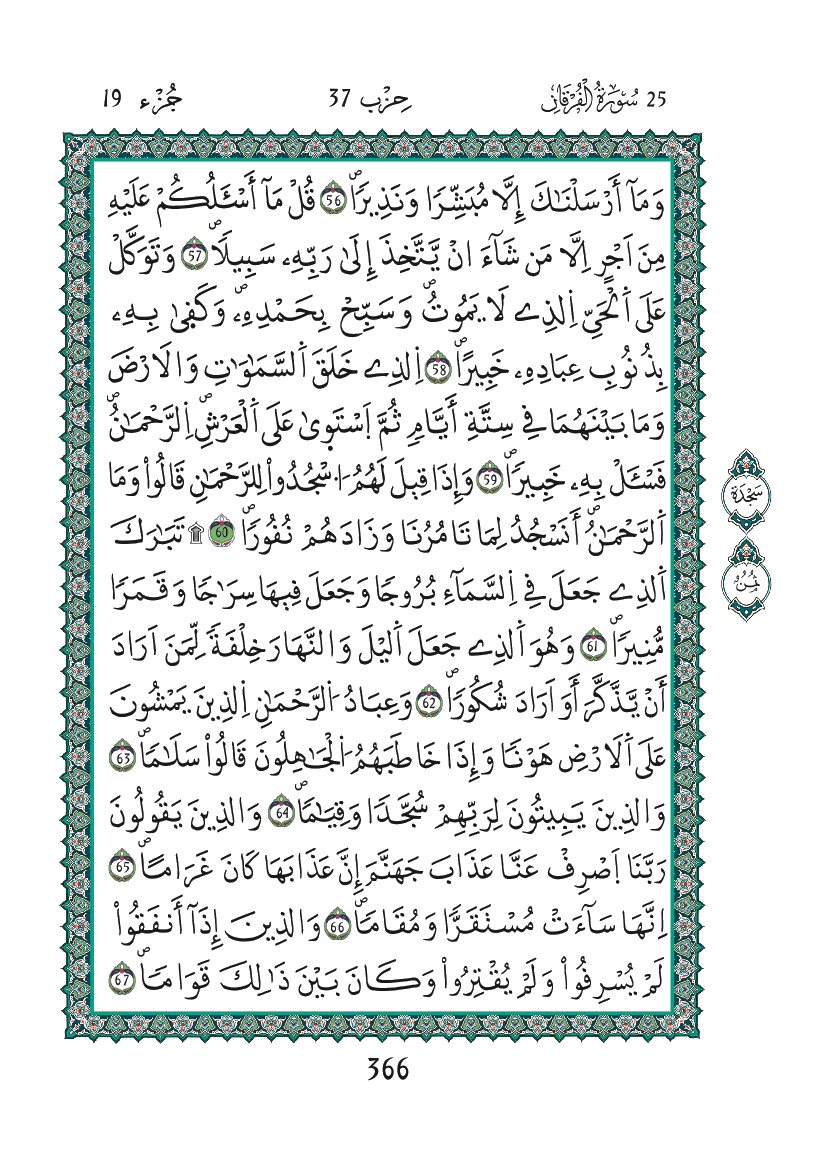 25 سُورَةُ الْفُرْقَانِ
حِزْب 37
جُزْء 19
وَمَآ أَرْسَلْنَٰكَ إِلَّا مُبَشِّرٗا وَنَذِيرٗاۖ 56 قُلْ مَآ أَسْـَٔلُكُمْ عَلَيْهِ
مِنَ اَجْرٍ اِلَّا مَن شَآءَ انْ يَّتَّخِذَ إِلَىٰ رَبِّهِۦ سَبِيلٗاۖ 57 وَتَوَكَّلْ
عَلَى اَ۬لْحَيِّ اِ۬لذِے لَا يَمُوتُۖ وَسَبِّحْ بِحَمْدِهِۦۖ وَكَفَىٰ بِهِۦ
بِذُنُوبِ عِبَادِهِۦ خَبِيراًۖ 58 اِ۬لذِے خَلَقَ اَ۬لسَّمَٰوَٰتِ وَالَارْضَ
وَمَا بَيْنَهُمَا فِے سِتَّةِ أَيَّامٖ ثُمَّ اَ۪سْتَوَىٰ عَلَى اَ۬لْعَرْشِۖ اِ۬لرَّحْمَٰنُۖ
فَسْـَٔلْ بِهِۦ خَبِيراٗۖ 59 وَإِذَا قِيلَ لَهُمُ اُ۟سْجُدُواْ لِلرَّحْمَٰنِ قَالُواْ وَمَا
اَ۬لرَّحْمَٰنُۖ أَنَسْجُدُ لِمَا تَامُرُنَا وَزَادَهُمْ نُفُورٗاۖ 60 ۩ تَبَٰرَكَ
اَ۬لذِے جَعَلَ فِے اِ۬لسَّمَآءِ بُرُوجٗا وَجَعَلَ فِيهَا سِرَٰجٗا وَقَمَرٗا
مُّنِيرٗاۖ 61 وَهُوَ اَ۬لذِے جَعَلَ اَ۬ليْلَ وَالنَّهَارَ خِلْفَةٗ لِّمَنَ اَرَادَ
أَنْ يَّذَّكَّرَ أَوَ اَرَادَ شُكُورٗاۖ 62 وَعِبَادُ اُ۬لرَّحْمَٰنِ اِ۬لذِينَ يَمْشُونَ
عَلَى اَ۬لَارْضِ هَوْنٗا وَإِذَا خَاطَبَهُمُ اُ۬لْجَٰهِلُونَ قَالُواْ سَلَٰمٗاۖ 63
وَالذِينَ يَبِيتُونَ لِرَبِّهِمْ سُجَّدٗا وَقِيَٰمٗاۖ 64 وَالذِينَ يَقُولُونَ
رَبَّنَا اَ۪صْرِفْ عَنَّا عَذَابَ جَهَنَّمَ إِنَّ عَذَابَهَا كَانَ غَرَامًاۖ 65
اِنَّهَا سَآءَتْ مُسْتَقَرّٗا وَمُقَامٗاۖ 66 وَالذِينَ إِذَآ أَنفَقُواْ
لَمْ يُسْرِفُواْ وَلَمْ يُقْتِرُواْ وَكَانَ بَيْنَ ذَٰلِكَ قَوَامٗاۖ 67
سَجْدَة
ثُمُنُ
366